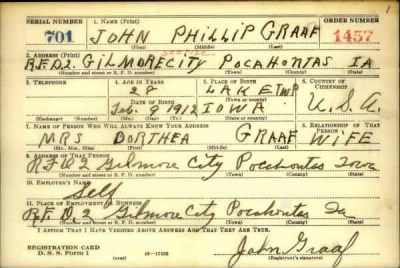 SERIAL NUMBER 1. NAME (Print) ORDER NUMBER
701 JOHN PHILLIP GRAAF 1457
(First) (Middle) (Last)
2. ADDRESS (Print)
R.F.D.2. GILMORE CITY POCAHONTAS IA
(Number and street or R. F. D. number) (Town) (County) (State)
3. TELEPHONE 4. AGE IN YEARS 5. PLACE OF BIRTH 6. COUNTRY OF CITIZENSHIP
28 LAKE TWP
(Town or county)
DATE OF BIRTH U.S.A.
Feb. 8 1912 IOWA
(Exchange) (Number) (Mo.) (Day) (Yr.) (State or country)
7. NAME OF PERSON WHO WILL ALWAYS KNOW YOUR ADDRESS 8. RELATIONSHIP OF THAT PERSON
MRS DORTHEA GRAAF WIFE
(Mr., Mrs., Miss) (First) (Middle) (Last)
9. ADDRESS OF THAT PERSON
R.F.D 2 Gilmore City Pocahontas Iowa
(Number and street or R. F. D. number) (Town) (County) (State)
10. EMPLOYER'S NAME
Self
11. PLACE OF EMPLOYMENT OR BUSINESS
R.F.D 2 Gilmore City Pocahontas Ia
(Number and street or R. F. D. number) (Town) (County) (State)
I AFFIRM THAT I HAVE VERIFIED ABOVE ANSWERS AND THAT THEY ARE TRUE.
REGISTRATION CARD
D. S. S. Form 1 16-17105 John Graaf
(Registrant's signature)